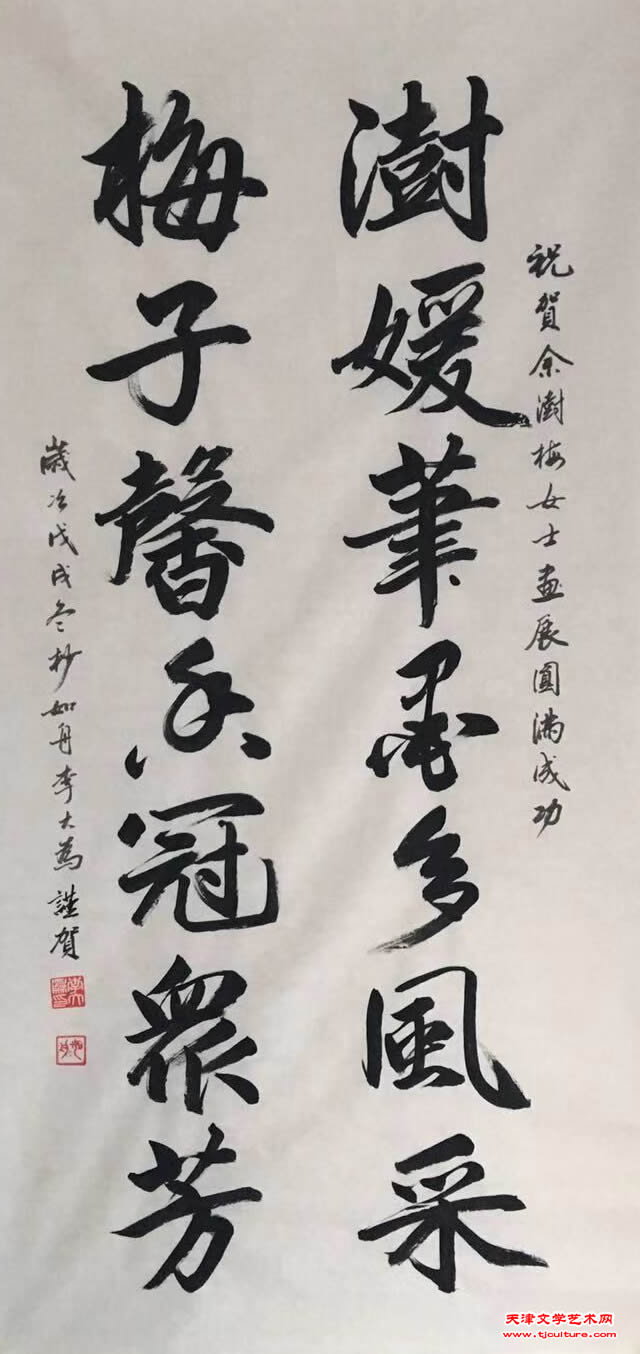 祝賀余澍梅女士畫展圓滿成功
澍媛筆墨多風采
梅子馨香冠眾芳
歲次戊戌冬杪如舟李大為謹賀
天津文学艺术网
www.tjculture.com